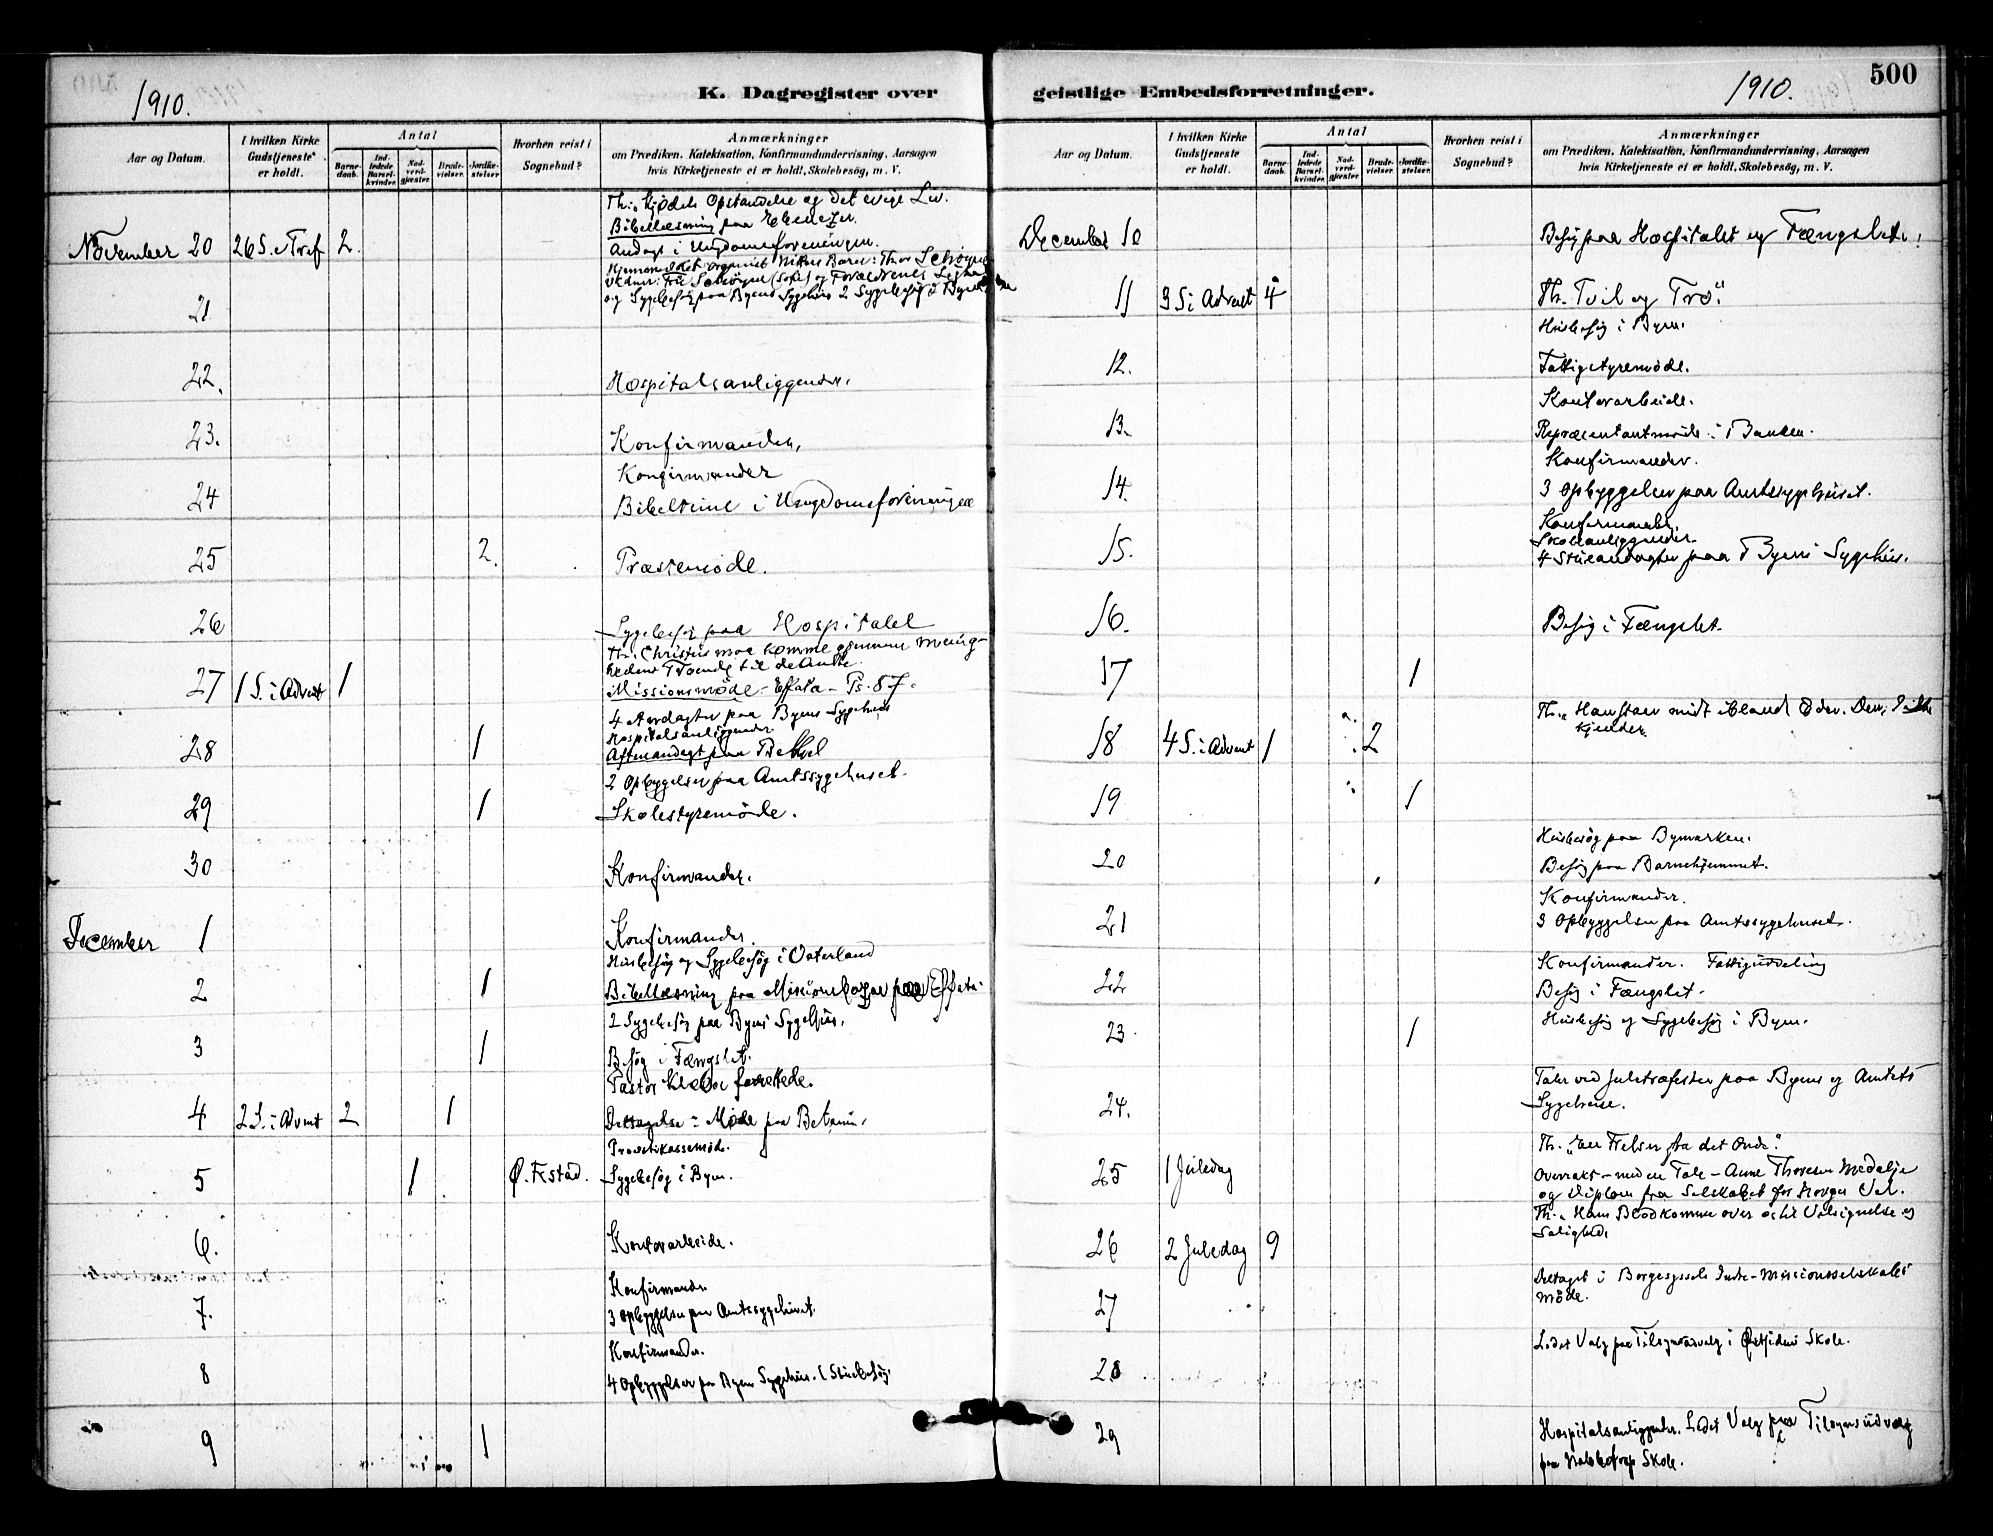 1910.
K. Dagregister over
Aar og Datum.
I hvilken Kirke Gudstjeneste er holdt.
Antal
Barne-daab.
Ind-ledede Barsel-kvinder.
Nad-verd-gjæster.
Brude-vielser.
Jordfæ-stelser.
Hvorhen reist i Sognebud?
Anmærkninger
om Prædiken, Katekisation, Konfirmandundervisning, Aarsagen
hvis Kirketjeneste ei er holdt, Skolebesøg, m. V.
Th. Kjødets Opstandelse og det evige Liv.
Bibellæsning paa Ebenezer.
November 20 26 S. e Tref 2. Andagt i Ungdomsforeningen.
og Sygebesøg paa Byens Sygehus 2 Sygebesøg i Byen
21
22. Hospitalsanliggender.
23. Konfirmander.
Konfirmander
24 Bibeltime i Ungdomsforeningen
25 2. Præstemøde.
26 Sygebesøg paa Hospitalet
Th. Christus maa komme gjennem Meng-
27 1 S. i Advent 1 Missionsmøde - Effata - Ps. 87.
4 Andagter paa Byens Sygehus
Hospitalsanliggender.
28 1 Aftenandagt paa Bethel
2 Opbyggelser paa Amtssygehuset.
29 1 Skolestyremøde.
30 Konfirmander.
December 1 Konfirmander.
Husbesøg og Sygebesøg i Vaterland
2 1 Bibellæsning paa Effata.
2 Sygebesøg paa Byens Sygehus.
3 1 Besøg i Fængslet.
Pastor forrettede.
4 2 S. i Advent 2 1 Deltagelse i Møde paa Betania.
5 1 Ø. Fstad. Sygebesøg i Byen.
6. Kontorarbeide.
Konfirmander.
7. 3 Opbyggelser paa Amtssygehuset.
Konfirmander.
8 4 Opbyggelser paa Byens Sygehus. (Stuebesøg)
9 1
geistlige Embedsforretninger.
1910.
500
Aar og Datum.
I hvilken Kirke Gudstjeneste er holdt.
Antal
Barne-daab.
Ind-ledede Barsel-kvinder.
Nad-verd-gjæster.
Brude-vielser.
Jordfæ-stelser.
Hvorhen reist i Sognebud?
Anmærkninger
om Prædiken, Katekisation, Konfirmandundervisning, Aarsagen
hvis Kirketjeneste ei er holdt, Skolebesøg, m. V.
December 10 Besøg paa Hospitalet og Fængslet.
11 3 S i Advent 4 Th. Tvil og Tro."
Husbesøg i Byen.
12. Fattigstyremøde.
Kontorarbeide.
13. Repræsentantmøde i Banken.
Konfirmander.
14. 3 Opbyggelser paa Amtssygehuset.
Konfirmander.
Skoleanliggender.
15. 4 Stueandagter paa Byens Sygehus.
16. Besøg i Fængslet.
17 1
Th. Han staar midt iblandt Eder. Den, I ikke
kjender.
18 4 S. i Advent 1 2
19 1
Husbesøg paa Bymarken.
20 Besøg paa Barnehjemmet.
Konfirmander.
21 3 Opbyggelser paa Amtssygehuset.
Konfirmander. Fattiguddeling
22 Besøg i Fængslet.
23 1 Husbesøg og Sygebesøg i Byen.
Taler ved Juletræfester paa Byens og Amtets
24. Sygehuse.
Th. "En Frelser fra det Onde".
25 1 Juledag Overrakt - med en Tale - Anne Thoresen Medalje
og Diplom fra Selskabet for Norges Vel.
Th. Hans Blod komme over os til Velsignelse og
Salighed.
26 2 Juledag 9
Deltaget i Borgesyssels Indre-Missionsselskabs
27 møde.
Ledet Valg paa Tilsynsudvalg i Østsidens Skole.
28
Hospitalsanliggender. Ledet Valg paa Tilsynsudvalg
29 paa Skole.